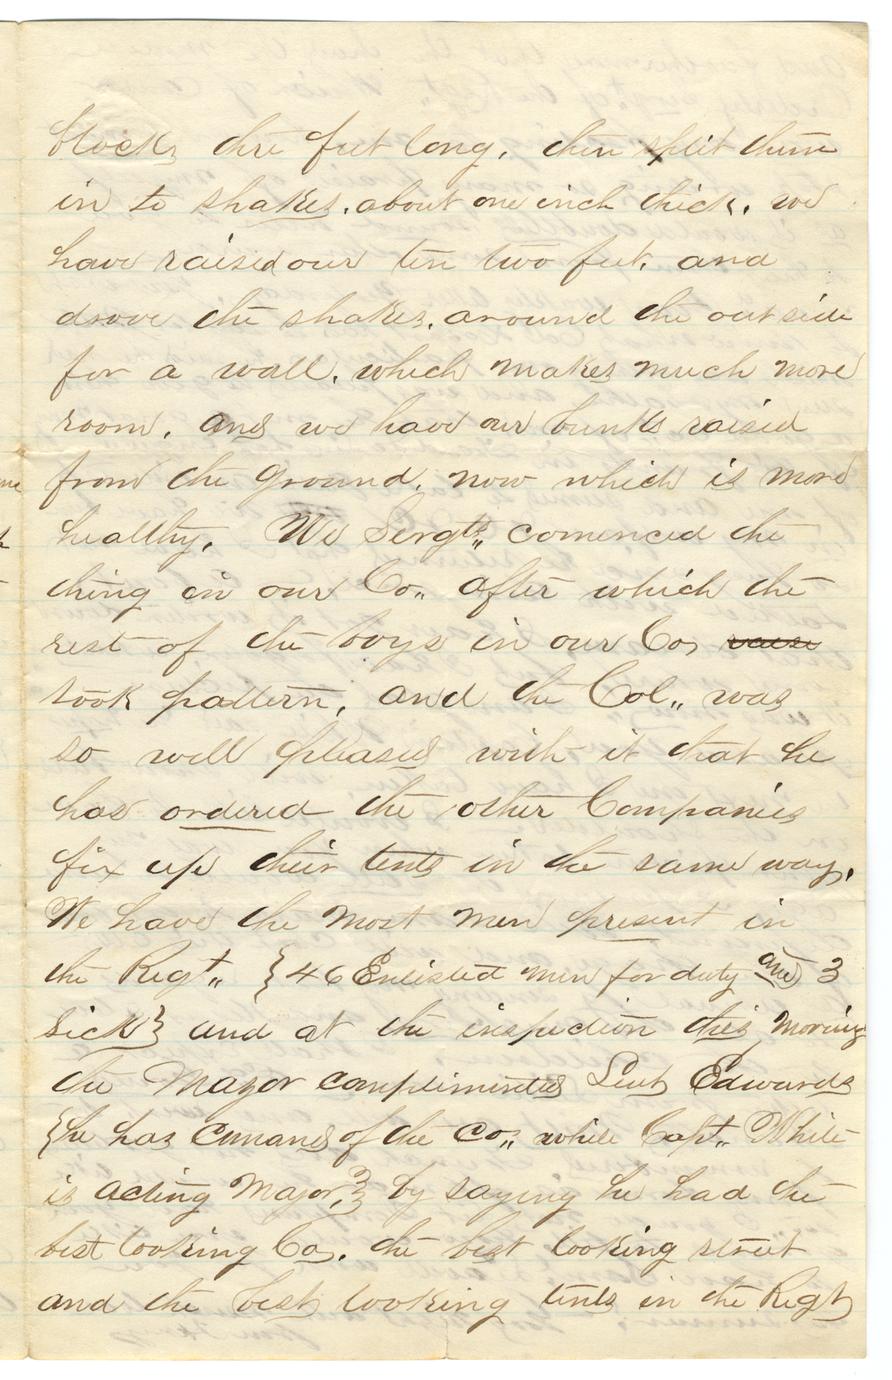 blocks thre feet long, then split them
in to shakes. about one inch thick. we
have raised our ten two feet. and
drove the shakes. around the out side
for a wall. which makes much more
room. and we have our bunks raised
from the ground. now which is more
healthy. We Sergts,, comenced the
thing in our Co,, after which the
rest of the boys in our Co,
took pattern, and the Col,, was
so well pleased with it that he
has ordered the other Companies
fix up their tents in the same way,
We have the most men present in
the Regt,, {46 Enlisted men for duty and 3
sick} and at the inspection this morning
the Major complimented Leut Edwards
{he has cumand of the Co,, while Capt,, White
is acting Major,} by saying he had the
best looking Co, the best looking street
and the best looking tents in the Regt